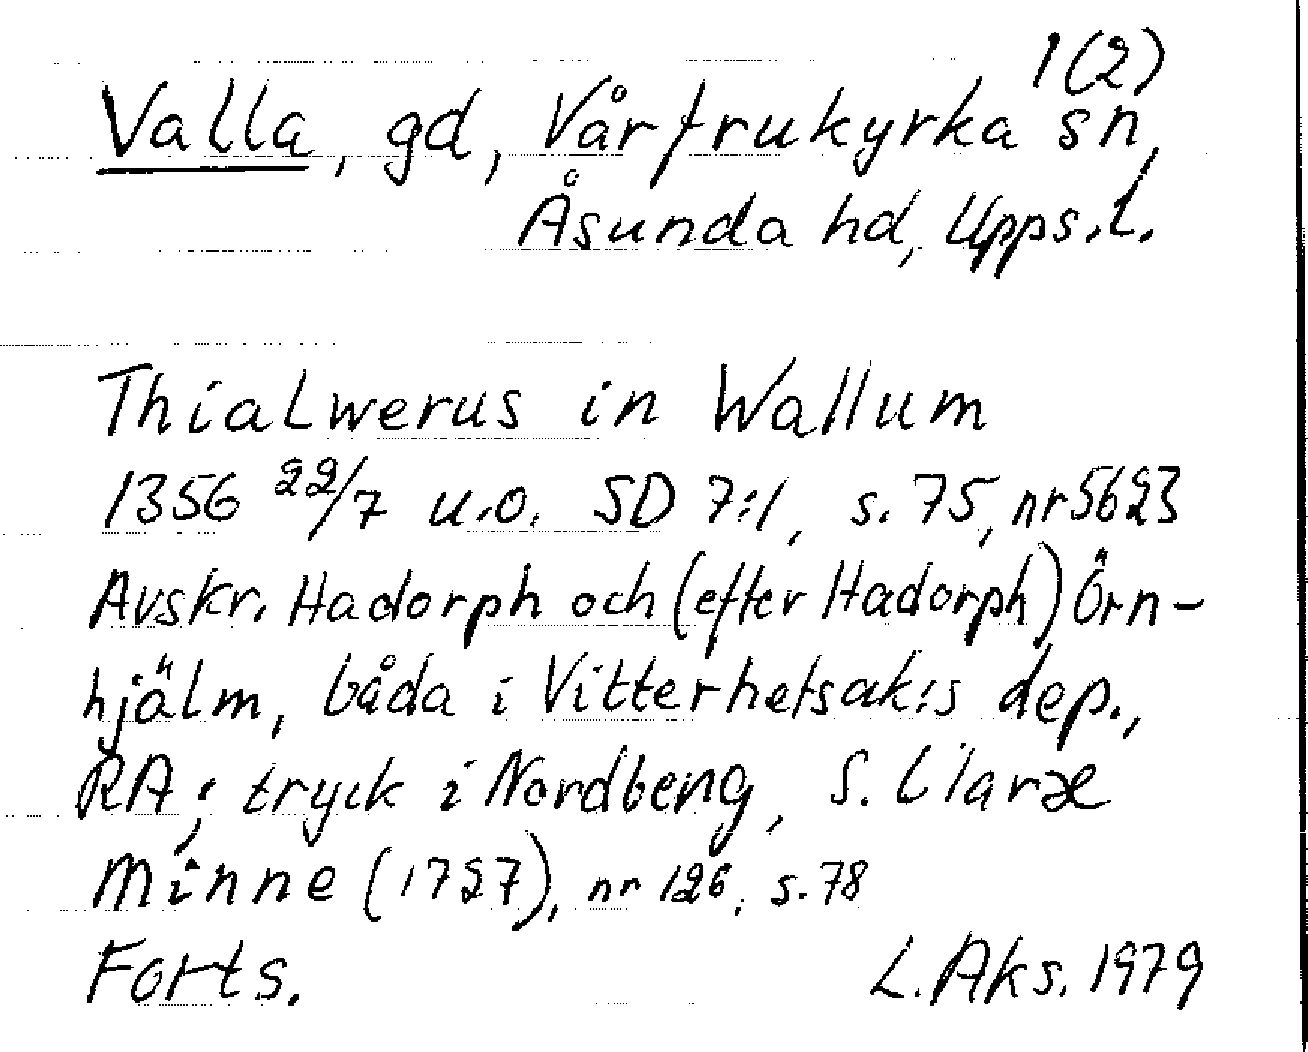 1(2)
Valla, gd, Vårfrukyrka sn,
Åsunda hd, Upps.l.
Thialwerus in Wallum
1356 22/7 u.o. SD 7:1, s. 75, nr 5623
Avskr. Hadorph och (efter Hadorph) Örn-
hjälm, båda i Vitterhetsak:s dep.,
RA; tryck i Nordberg, S. Claræ
Minne (1727), nr 126, s. 78
Forts. L. Aks. 1979